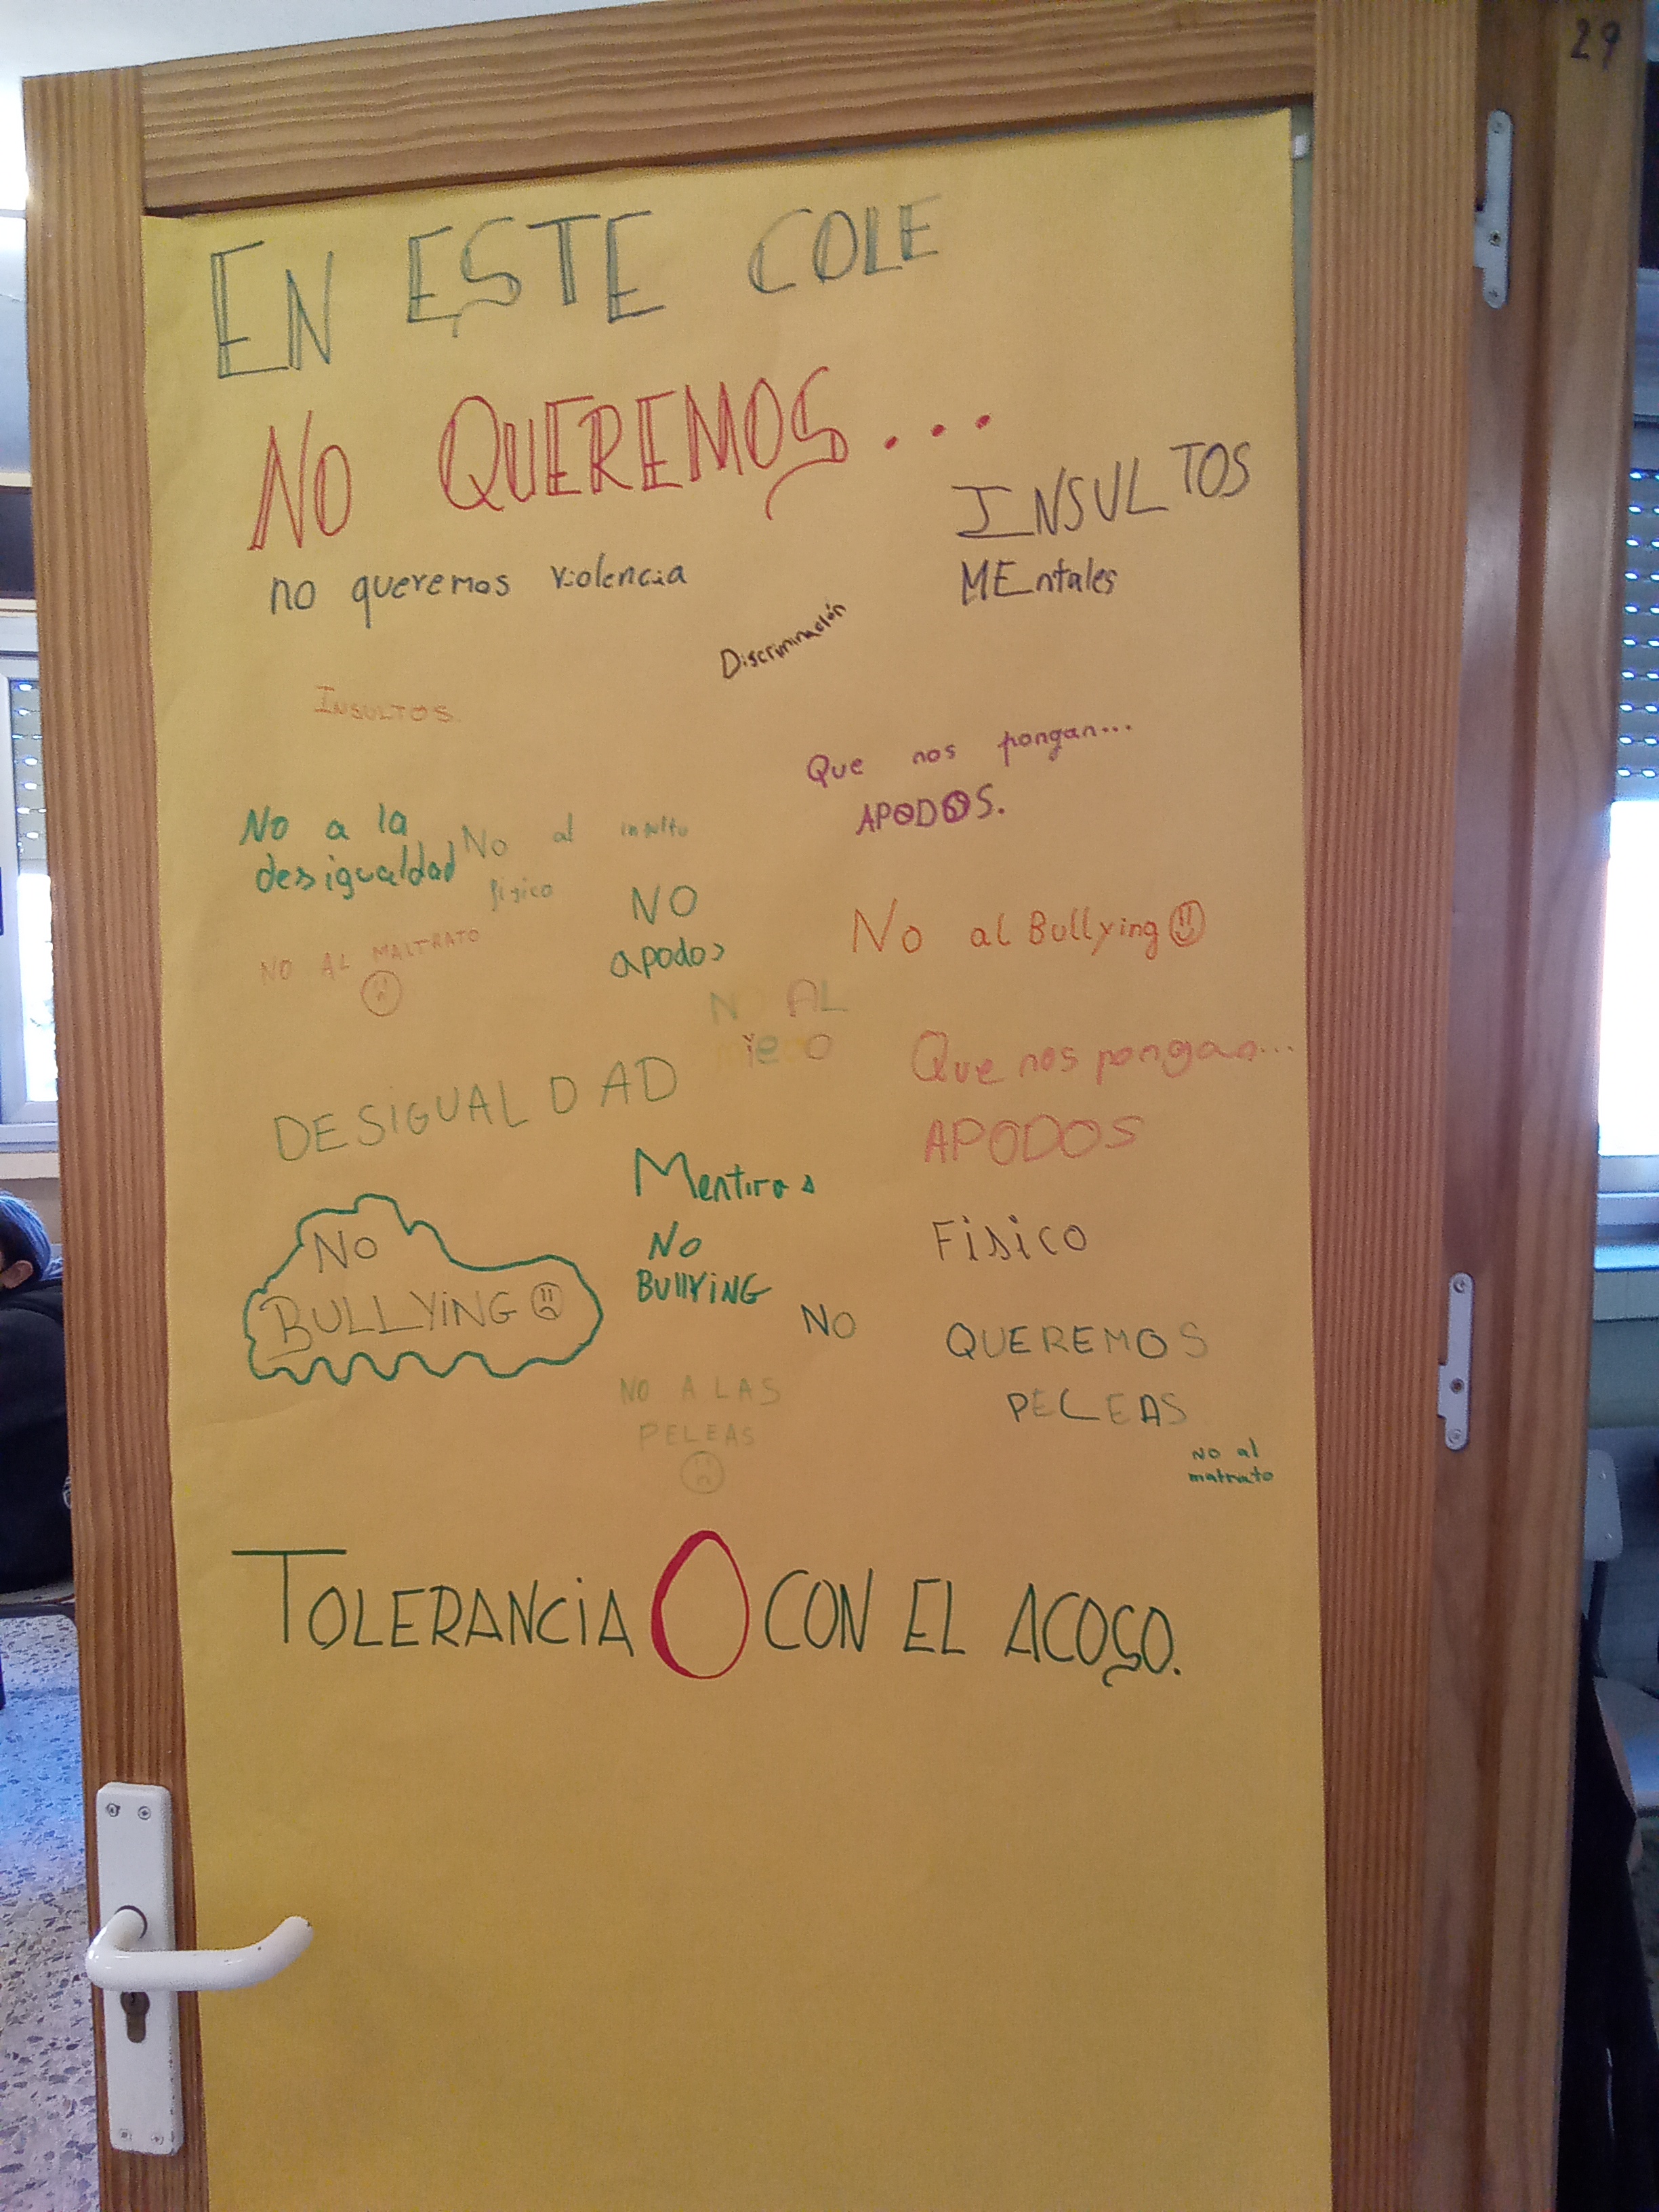 29
EN ESTE COLE
NO QUEREMOS...
INSULTOS
MEntales
no queremos violencia
Discriminación
INSULTOS
Que nos pongan...
APODOS.
No a la
desigualdad
No al insulto
físico
NO
apodos
No al Bullying
NO AL MALTRATO
NO AL
miedo
Que nos pongan...
APODOS
DESIGUALDAD
Mentiras
Fisico
NO
BULLYiNG
No
BUllYiNG
NO QUEREMOS
PELEAS
NO A LAS
PELEAS
NO al
matrato
TOLERANCiA 0 CON EL ACOSO.